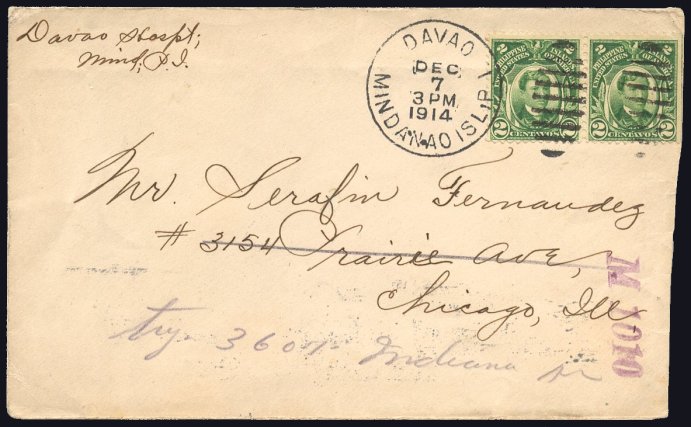 Davao Hospl;
Mind, P.I.
DAVAO
DEC.
7
3 PM
1914
MINDANAO ISL. P.I.
2 2
PHILIPPINE ISLANDS
UNITED STATES OF AMERICA
2 CENTAVOS 2
2 2
PHILIPPINE ISLANDS
UNITED STATES OF AMERICA
2 CENTAVOS 2
Mr. Serafin Fernandez
# 3154 Prairie Ave,
Chicago, Ill
try- Indiana av
M 1010